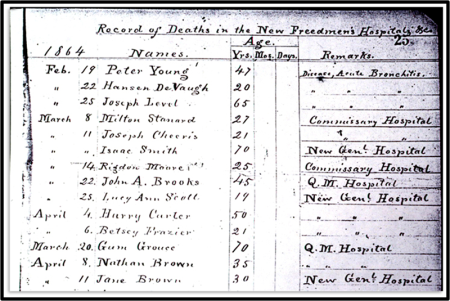 Record of Deaths in the New Freedmen's Hospitals, &c.
Age. 25.
1864 Names. Yrs. Mos. Days. Remarks.
Feb. 19 Peter Young 47 Disease, Acute Bronchitis.
" 22 Hansen DeVaugh 20 " " "
" 25 Joseph Level 65 " " "
March 8 Milton Stanard 27 Commissary Hospital
" 11 Joseph Cheeris 21 " "
" " Isaac Smith 70 New Genl. Hospital
" 14 Rigdon Moore 25 Commissary Hospital
" 22. John A. Brooks 45 Q.M. Hospital
" 25. Lucy Ann Scott 19 New Genl. Hospital
April 4. Harry Carter 50 " " "
" 6. Betsey Frazier 21 " " "
March 20. Gum Grouce 70 Q.M. Hospital
April 8. Nathan Brown 35 " "
" 11 Jane Brown 30 New Genl. Hospital